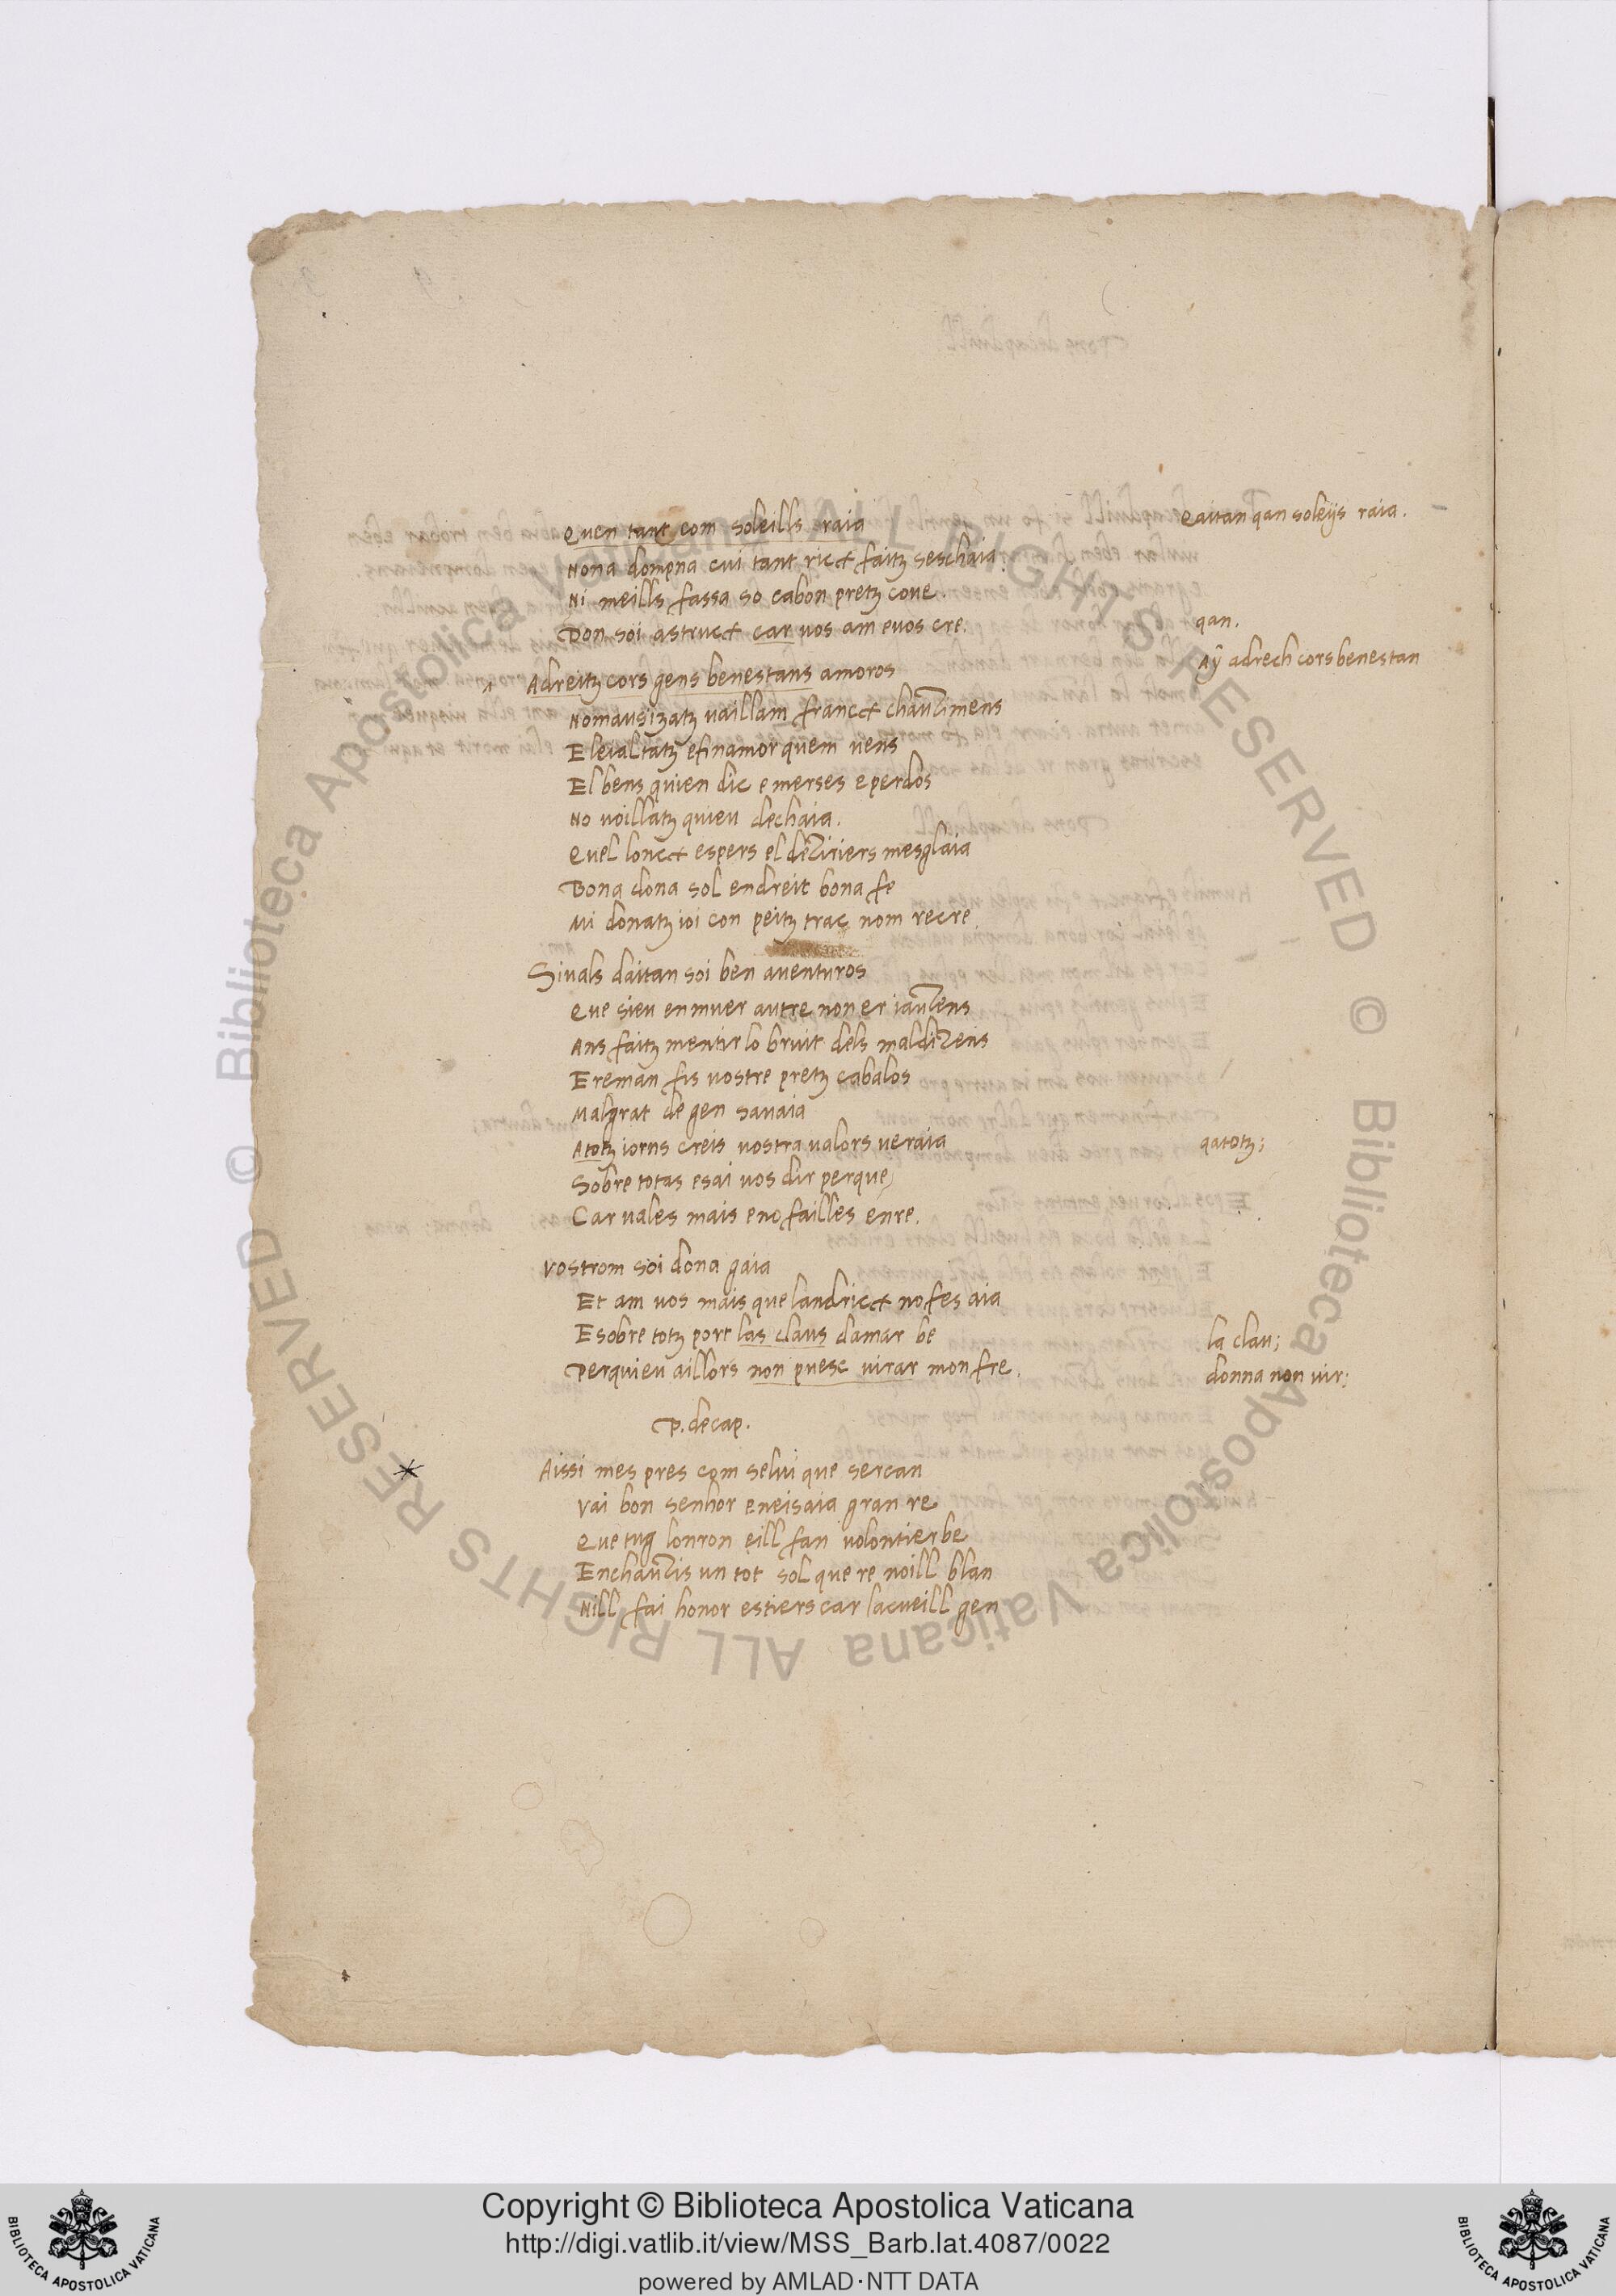 Quen tant com soleills raia
eaitan qan soleijs raia.
Nona dompna cui tant rict faitz seschaia.
Ni meills fassa so cabon pretz coue.
Don soi astruct car uos am euos cre.
qan.
Adreitz cors gens benestans amoros
Aÿ adrech cors benestan
Nomausizatz uaillam franct chauzimens
Eleialtatz efinamor quem uens
El bens quien dic emerses eperdos
No uoillatz quieu dechaia.
Quel lonct espers el deziriers mesglaia
Bona dona sol endreit bona fe
Mi donatz ioi con peitz trac nom recre.
Siuals daitan soi ben auenturos
Que sieu enmuer autre non er iauzens
Ans faitz mentir lo bruit dels maldizens
Ereman fis uostre pretz cabalos
Malgrat de gen sauaia
Atotz iorns creis uostra ualors ueraia
qatotz;
Sobre totas esai uos dir perque
Car uales mais eno failles enre.
Vostrom soi dona gaia
Et am uos mais que landrict no fes aia
Esobre totz port las claus damar be
la clau;
Perquieu aillors non puesc uirar mon fre.
donna non uir;
P. decap.
Aissi mes pres com selui que sercan
Vai bon senhor eneisaia gran re
Que tug lonron eill fan uolontier be
Enchauzis un tot sol que re noill blan
Nill fai honor estiers car lacueill gen
Copyright © Biblioteca Apostolica Vaticana
http://digi.vatlib.it/view/MSS_Barb.lat.4087/0022
powered by AMLAD·NTT DATA
BIBLIOTECA APOSTOLICA VATICANA
BIBLIOTECA APOSTOLICA VATICANA
© Biblioteca Apostolica Vaticana ALL RIGHTS RESERVED
© Biblioteca Apostolica Vaticana ALL RIGHTS RESERVED